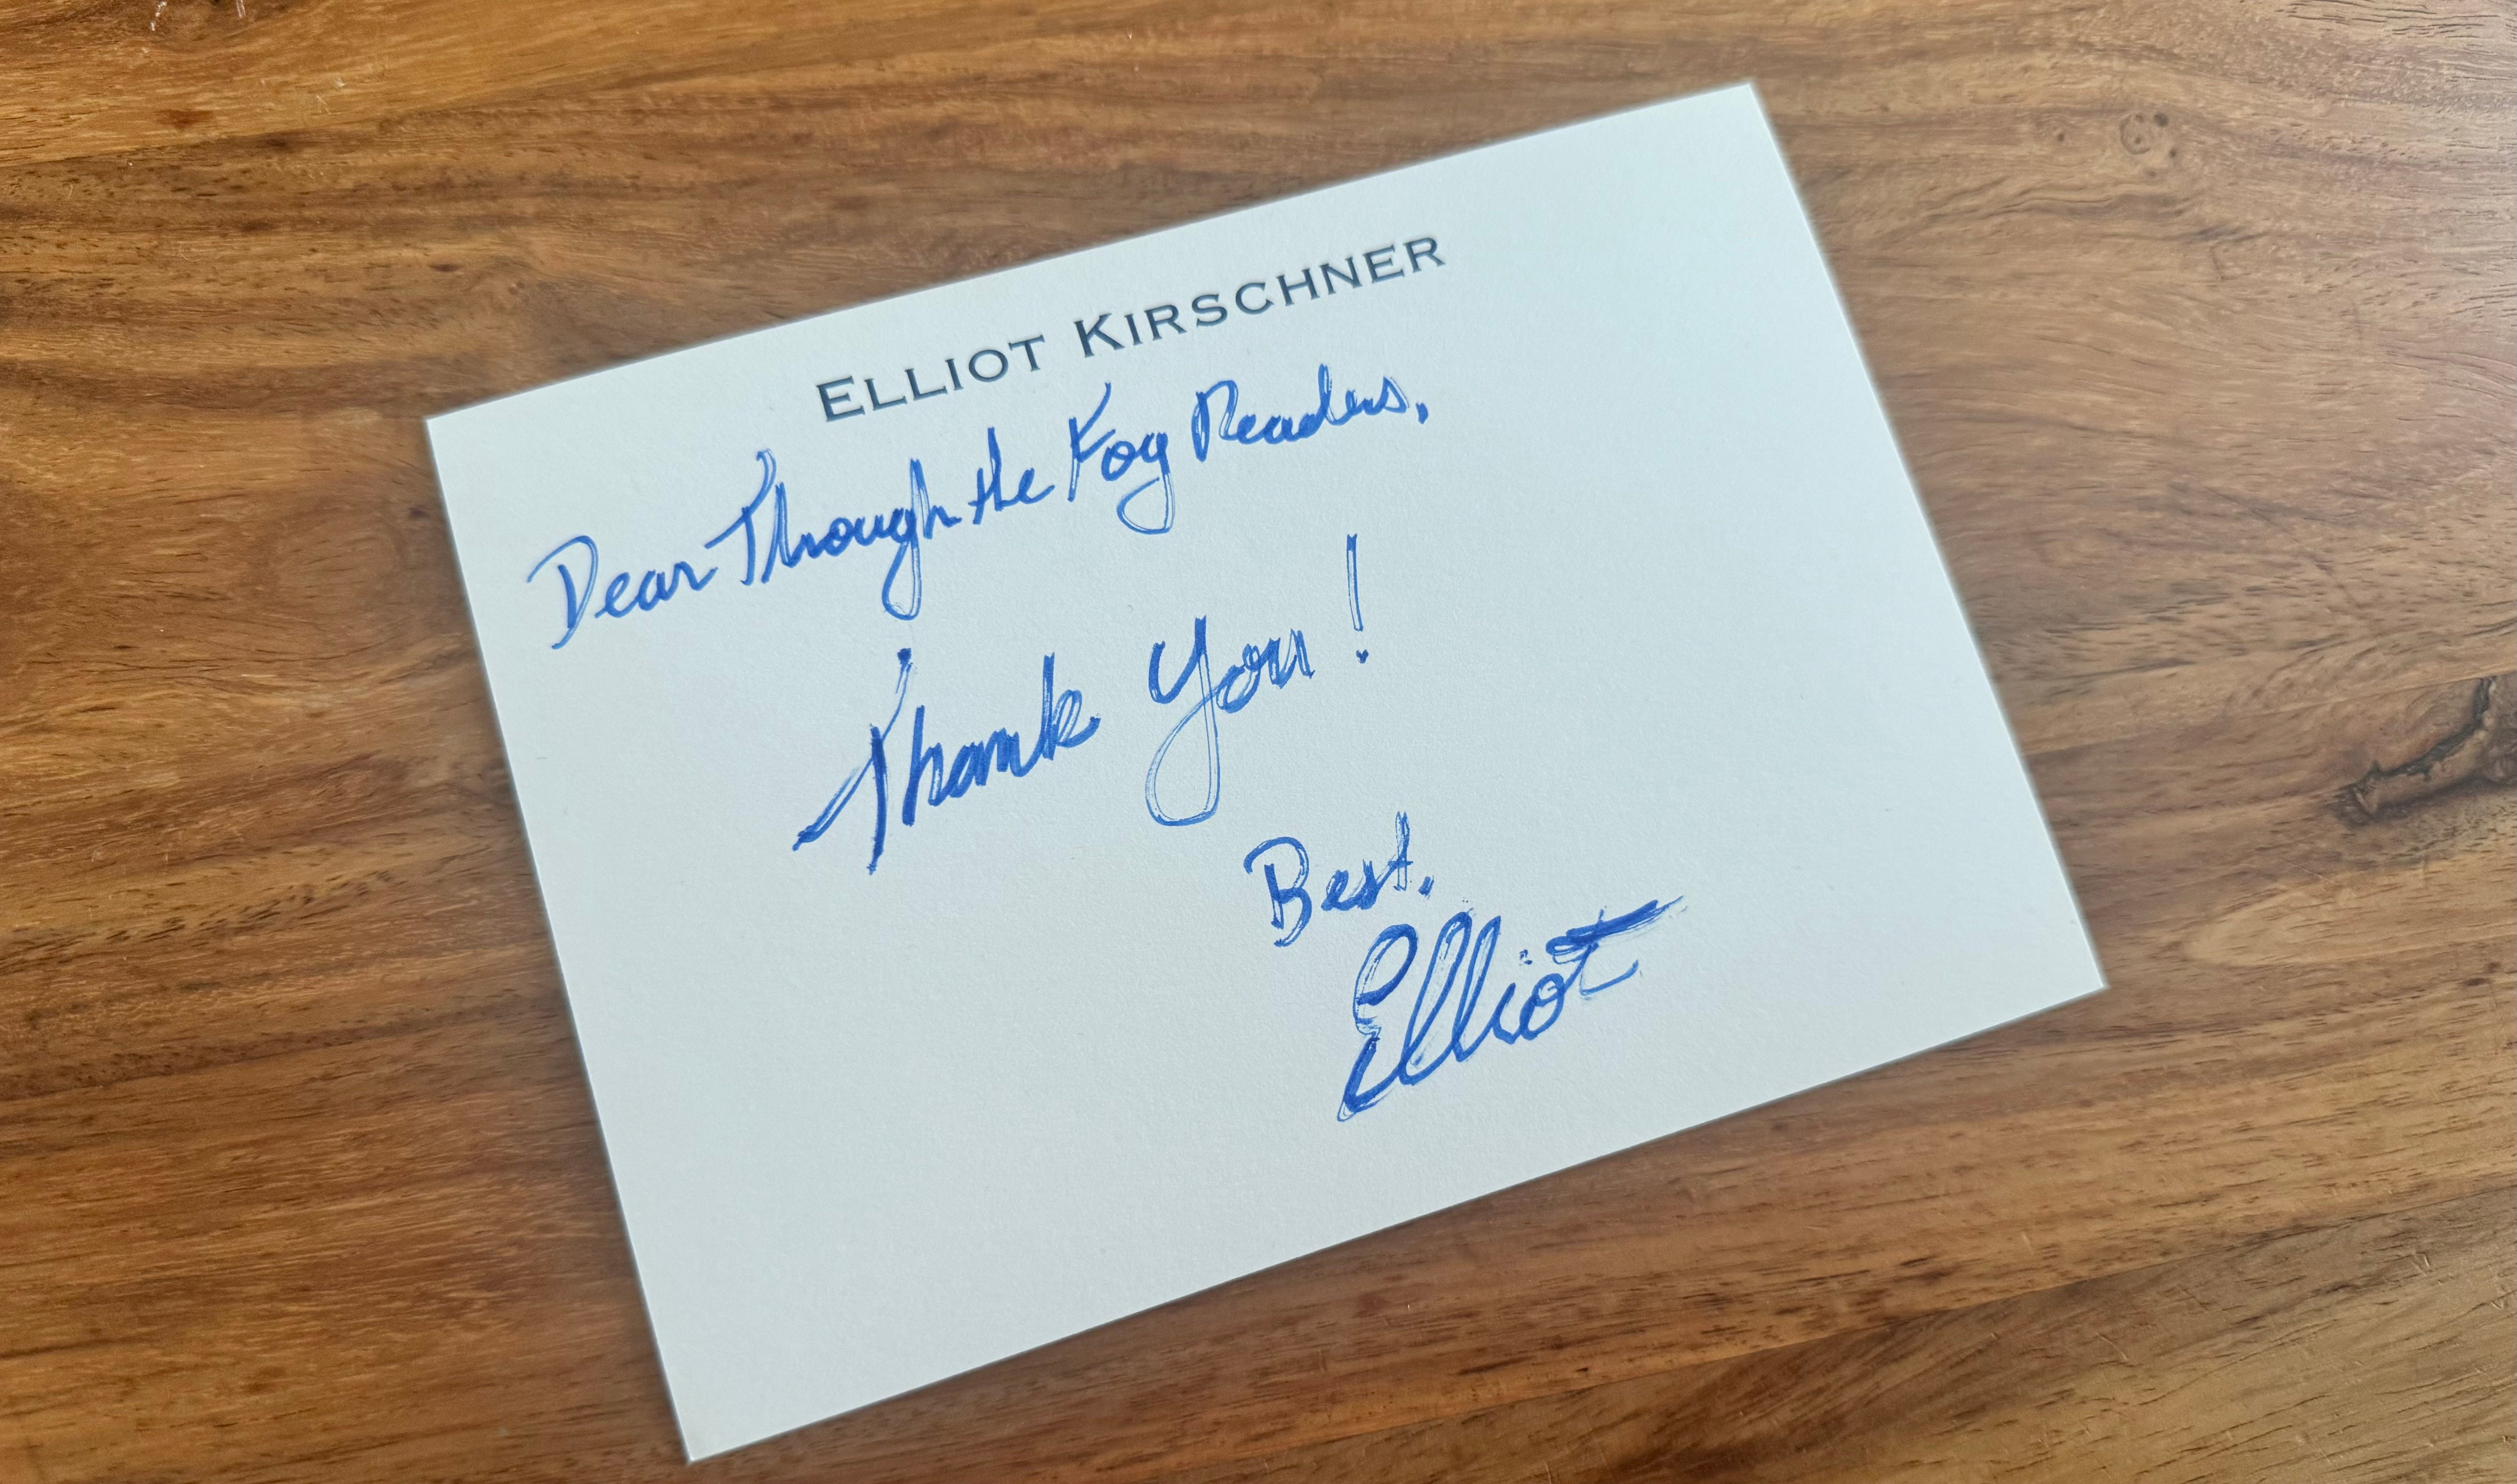 ELLIOT KIRSCHNER
Dear Through the Fog Readers,
Thank You!
Best,
Elliot